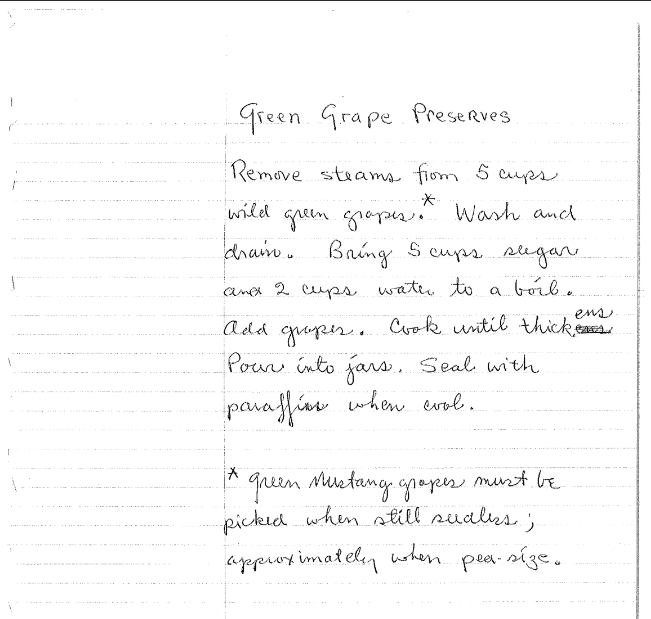 Green Grape Preserves
Remove steams from 5 cups
wild green grapes.* Wash and
drain. Bring 5 cups sugar
and 2 cups water to a boil.
Add grapes. Cook until thickens
Pour into jars. Seal with
paraffin when cool.
* Green Mustang grapes must be
picked when still seedless;
approximately when pea-size.